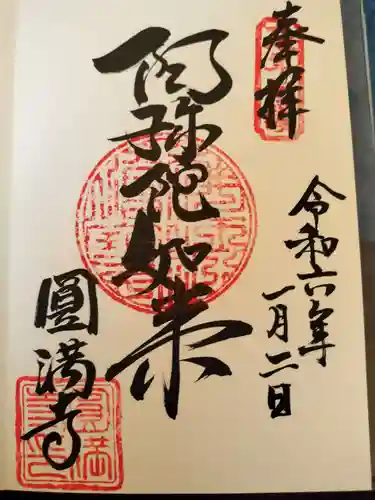 奉拝
令和六年
一月二日
阿弥陀如来
圓満寺